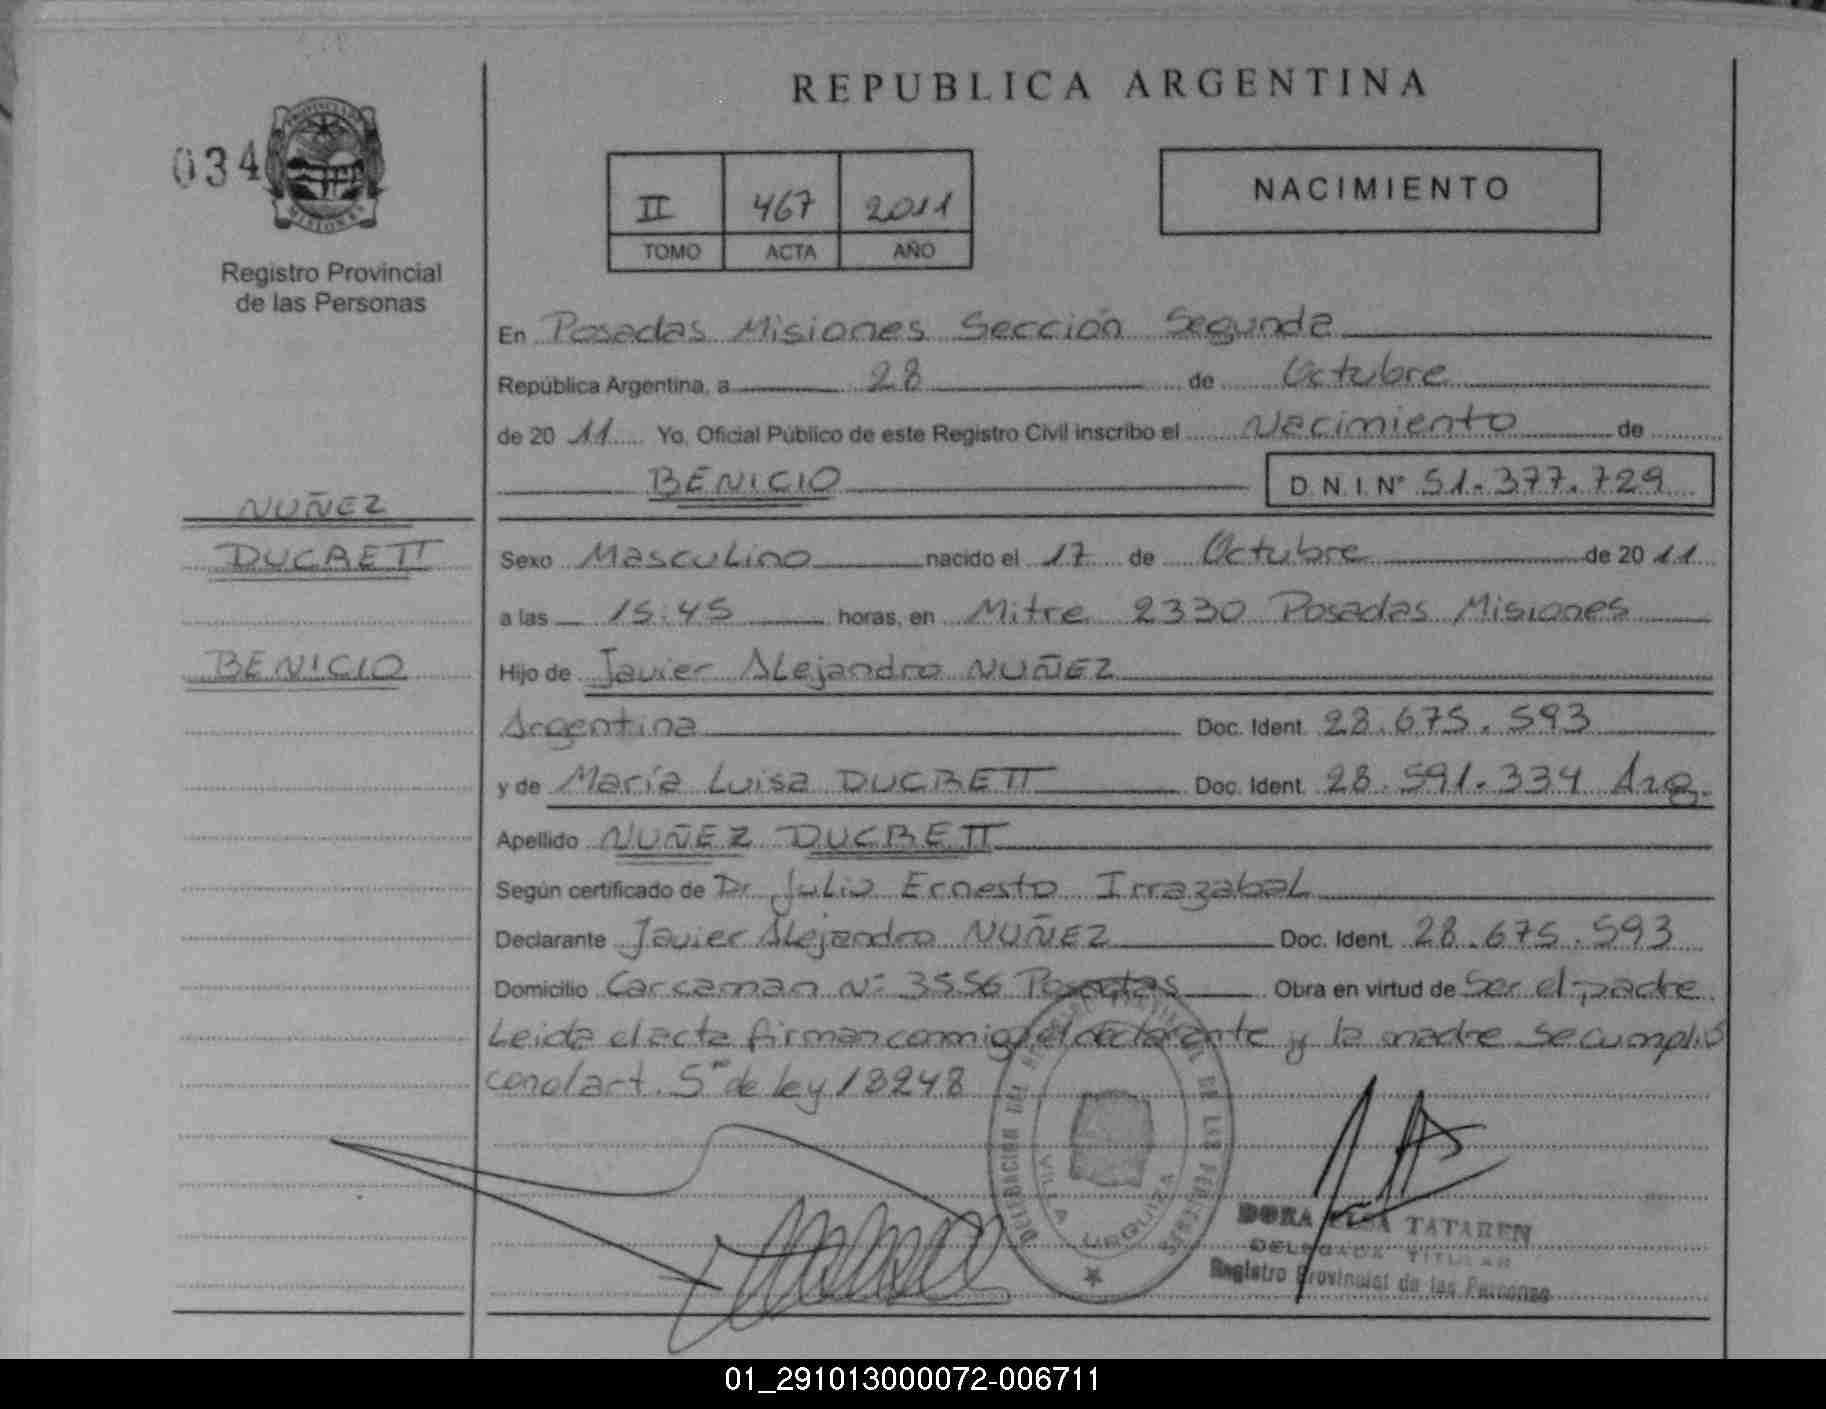 REPUBLICA ARGENTINA
034
Registro Provincial
de las Personas
II 467 2011
TOMO ACTA AÑO
NACIMIENTO
En Posadas Misiones Sección Segunda
República Argentina, a 28 de Octubre
de 20 11 Yo, Oficial Público de este Registro Civil inscribo el Nacimiento de
BENICIO D.N.I. Nº 51.377.729
NUÑEZ
DUCRETT
BENICIO
Sexo Masculino nacido el 17 de Octubre de 20 11
a las 15:45 horas, en Mitre 2330 Posadas Misiones
Hijo de Javier Alejandro NUÑEZ
Argentina Doc. Ident. 28.675.593
y de María Luisa DUCRETT Doc. Ident. 28.591.334 Arg.
Apellido NUÑEZ DUCRETT
Según certificado de Dr. Julio Ernesto Irrazabal
Declarante Javier Alejandro NUÑEZ Doc. Ident. 28.675.593
Domicilio Carcaman Nº 3556 Posadas Obra en virtud de Ser el padre
Leida el acta firman conmigo el declarante y la madre se cumplió
con el art. 5to de ley 18248
VILLA URQUIZA
DORA ELSA TATAREN
DELEGADA TITULAR
Registro Provincial de las Personas
01_291013000072-006711